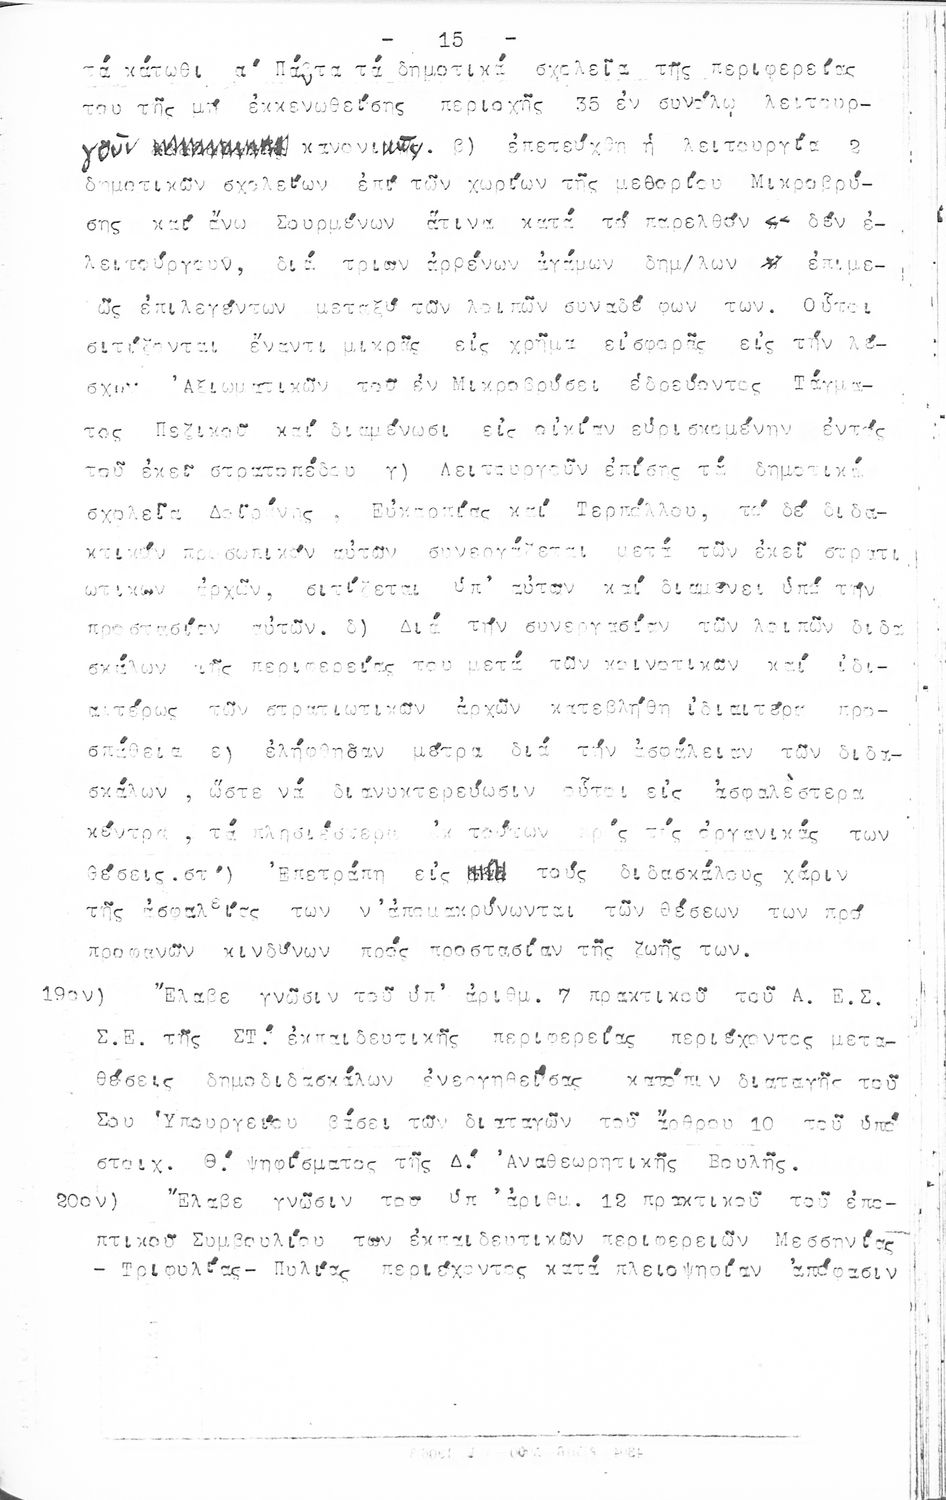 - 15 -
τά κάτωθι α' Πάντα τά δημοτικά σχολεῖα τῆς περιφερείας
του τῆς μή ἐκκενωθείσης περιοχῆς 35 ἐν συνόλῳ λειτουρ-
γοῦν κανονικῶς. β) ἐπετεύχθη ἡ λειτουργία 2
δημοτικῶν σχολείων ἐπί τῶν χωρίων τῆς μεθορίου Μικροβρύ-
σης καί ἄνω Σουρμένων ἅτινα κατά τό παρελθόν δέν ἐ-
λειτούργουν, διά τριῶν ἀρρένων ἀγάμων δημ/λων ἐπιμε-
ῶς ἐπιλεγέντων μεταξύ τῶν λοιπῶν συναδέ φων των. Οὗτοι
σιτίζονται ἔναντι μικρᾶς εἰς χρῆμα εἰσφορᾶς εἰς τήν λέ-
σχην 'Αξιωματικῶν τοῦ ἐν Μικροβρύσει ἑδρεύοντος Τάγμα-
τος Πεζικοῦ καί διαμένωσι εἰς οἰκίαν εὑρισκομένην ἐντός
τοῦ ἐκεῖ στρατοπέδου γ) Λειτουργοῦν ἐπίσης τά δημοτικά
σχολεῖα Δοϊράνης , Εὐκαρπίας καί Τερπύλλου, τό δέ διδα-
κτικόν προσωπικόν αὐτῶν συνεργάζεται μετά τῶν ἐκεῖ στρατι
ωτικῶν ἀρχῶν, σιτίζεται ὑπ' αὐτῶν καί διαμένει ὑπό τήν
προστασίαν αὐτῶν. δ) Διά τήν συνεργασίαν τῶν λοιπῶν διδα
σκάλων τῆς περιφερείας του μετά τῶν κοινοτικῶν καί ἰδι-
αιτέρως τῶν στρατιωτικῶν ἀρχῶν κατεβλήθη ἰδιαιτέρα προ-
σπάθεια ε) ἐλήφθησαν μέτρα διά τήν ἀσφάλειαν τῶν διδα-
σκάλων , ὥστε νά διανυκτερεύωσιν οὗτοι εἰς ἀσφαλὲστερα
κέντρα , τά πλησιέστερα ἐκ τούτων πρός τάς ὀργανικάς των
θέσεις.στ') 'Επετράπη εἰς τούς διδασκάλους χάριν
τῆς ἀσφαλείας των ν'ἀπομακρύνωνται τῶν θέσεων των πρό
προφανῶν κινδύνων πρός προστασίαν τῆς ζωῆς των.
19ον) "Ελαβε γνῶσιν τοῦ ὑπ' ἀριθμ. 7 πρακτικοῦ τοῦ Α. Ε.Σ.
Σ.Ε. τῆς ΣΤ.' ἐκπαιδευτικῆς περιφερείας περιέχοντος μετα-
θέσεις δημοδιδασκάλων ἐνεργηθείσας κατόπιν διαταγῆς τοῦ
Σου 'Υπουργείου βάσει τῶν διαταγῶν τοῦ ἄρθρου 10 τοῦ ὑπό
στοιχ. Θ.' ψηφίσματος τῆς Δ.' 'Αναθεωρητικῆς Βουλῆς.
20ον) "Ελαβε γνῶσιν τοῦ ὑπ 'ἀριθμ. 12 πρακτικοῦ τοῦ ἐπο-
πτικοῦ Συμβουλίου των ἐκπαιδευτικῶν περιφερειῶν Μεσσηνίας
- Τριφυλίας- Πυλίας περιέχοντος κατά πλειοψηφίαν ἀπόφασιν